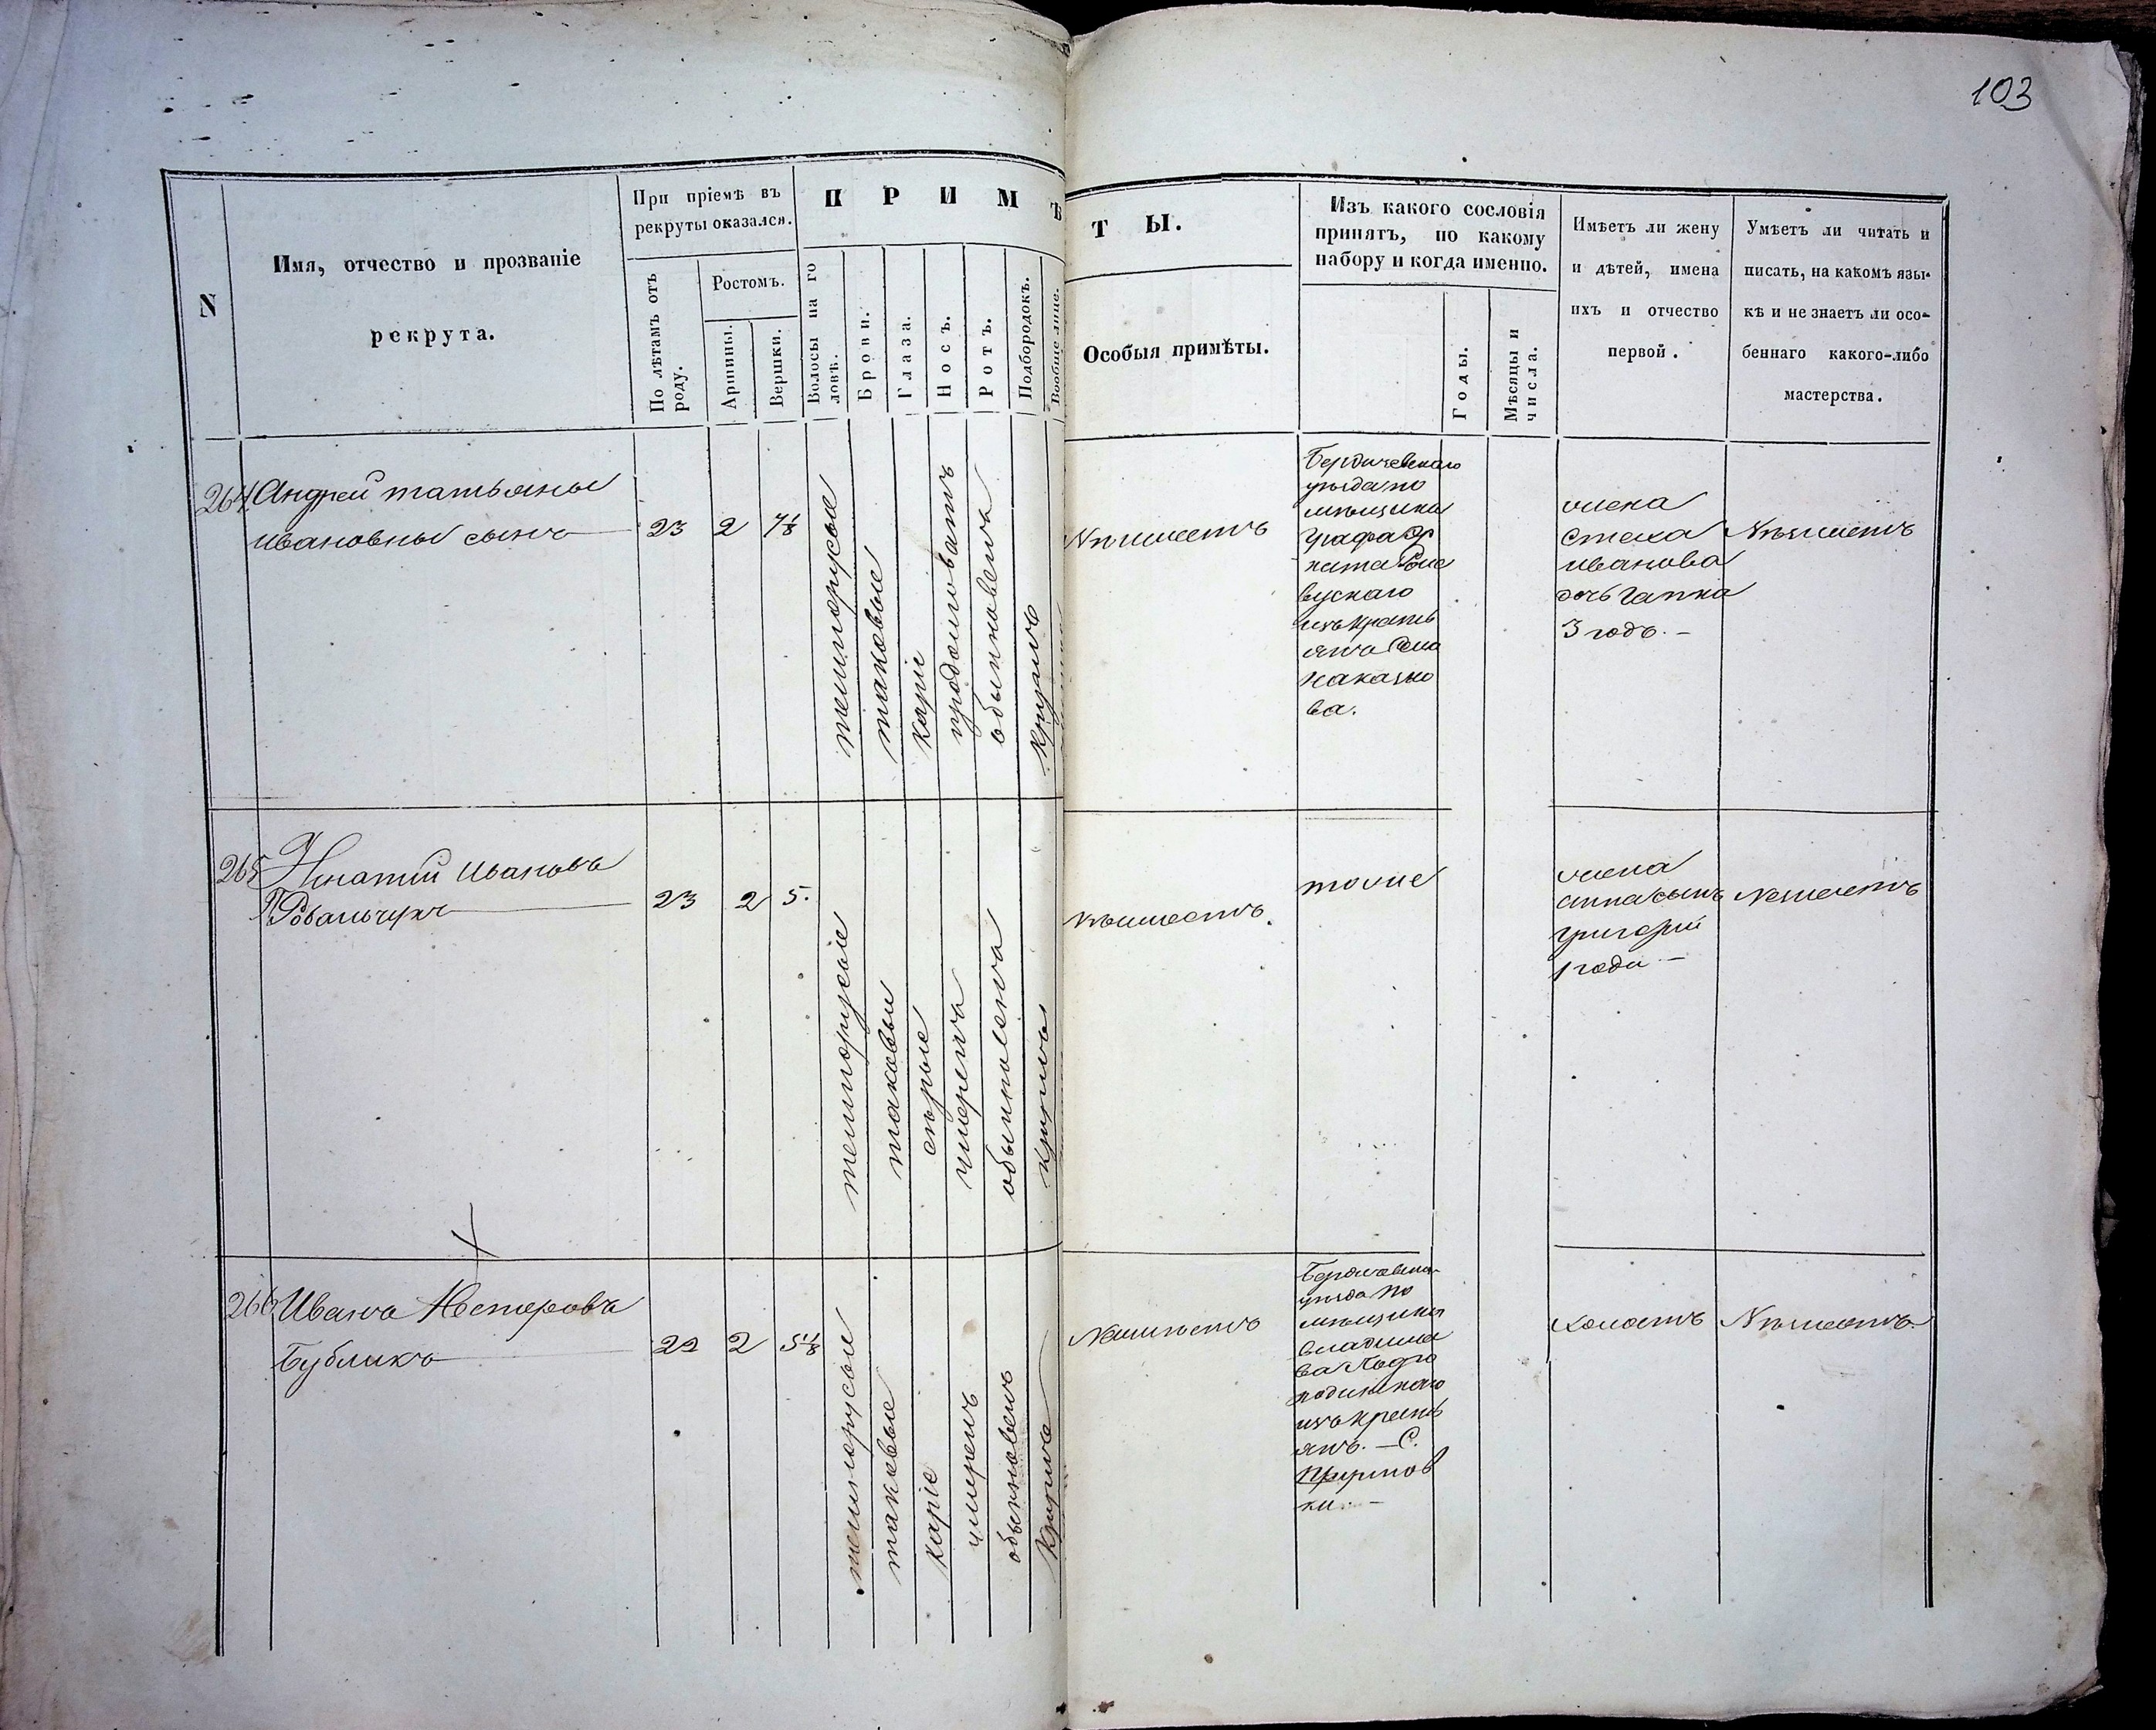 103
N
Имя, отчество и прозваніе
рекрута.
При пріемѣ въ
рекруты оказался.
По лѣтамъ отъ
роду.
Ростомъ.
Аршины.
Вершки.
П Р И М Ѣ
Волосы на го
ловѣ.
Брови.
Глаза.
Носъ.
Ротъ.
Подбородокъ.
Вообще лице.
Т Ы.
Особыя примѣты.
Изъ какого сословія
принятъ, по какому
набору и когда именно.
Годы.
Мѣсяцы и
числа.
Имѣетъ ли жену
и дѣтей, имена
ихъ и отчество
первой.
Умѣетъ ли читать и
писать, на какомъ язы-
кѣ и не знаетъ ли осо-
беннаго какого-либо
мастерства.
264
Андрей татьяны
ивановны сынъ
23
2
темнорусые
таковые
каріе
продолговатъ
обыкновенъ
круглъ
Неимеетъ
Бердичевскаго
уѣзда по
мѣщика
Графа
вускаго
изъ крестъ
янъ Села
ва.
жена
Стеха
иванова
дочь Гапка
3 годъ. -
Неимеетъ
265
Игнатій Ивановъ
23
2
5.
темнорусые
таковыи
сѣрые
умеренъ
круглъ
неимеетъ.
тоже
жена
анна сынъ
григорій
1 года -
Неимеетъ
266
Иванъ Нестеровъ
Бубликъ
22
2
5 1/8
темнорусыи
таковые
каріе
умеренъ
обыкновенъ
круглъ
Неимеетъ
уѣзда по
мѣщика
владисла
ва
изъ крестъ
янъ. — С.
ки. -
холостъ
Неимеетъ